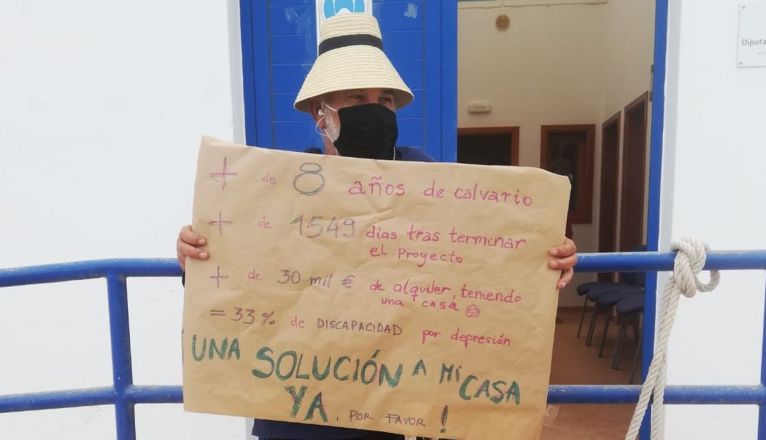 + de 8 años de calvario
+ de 1549 dias tras terminar
el Proyecto
+ de 30 mil € de alquiler, teniendo
una casa
= 33% de DISCAPACIDAD por depresión
¡UNA SOLUCIÓN A MI CASA
YA, POR FAVOR!
Diputa